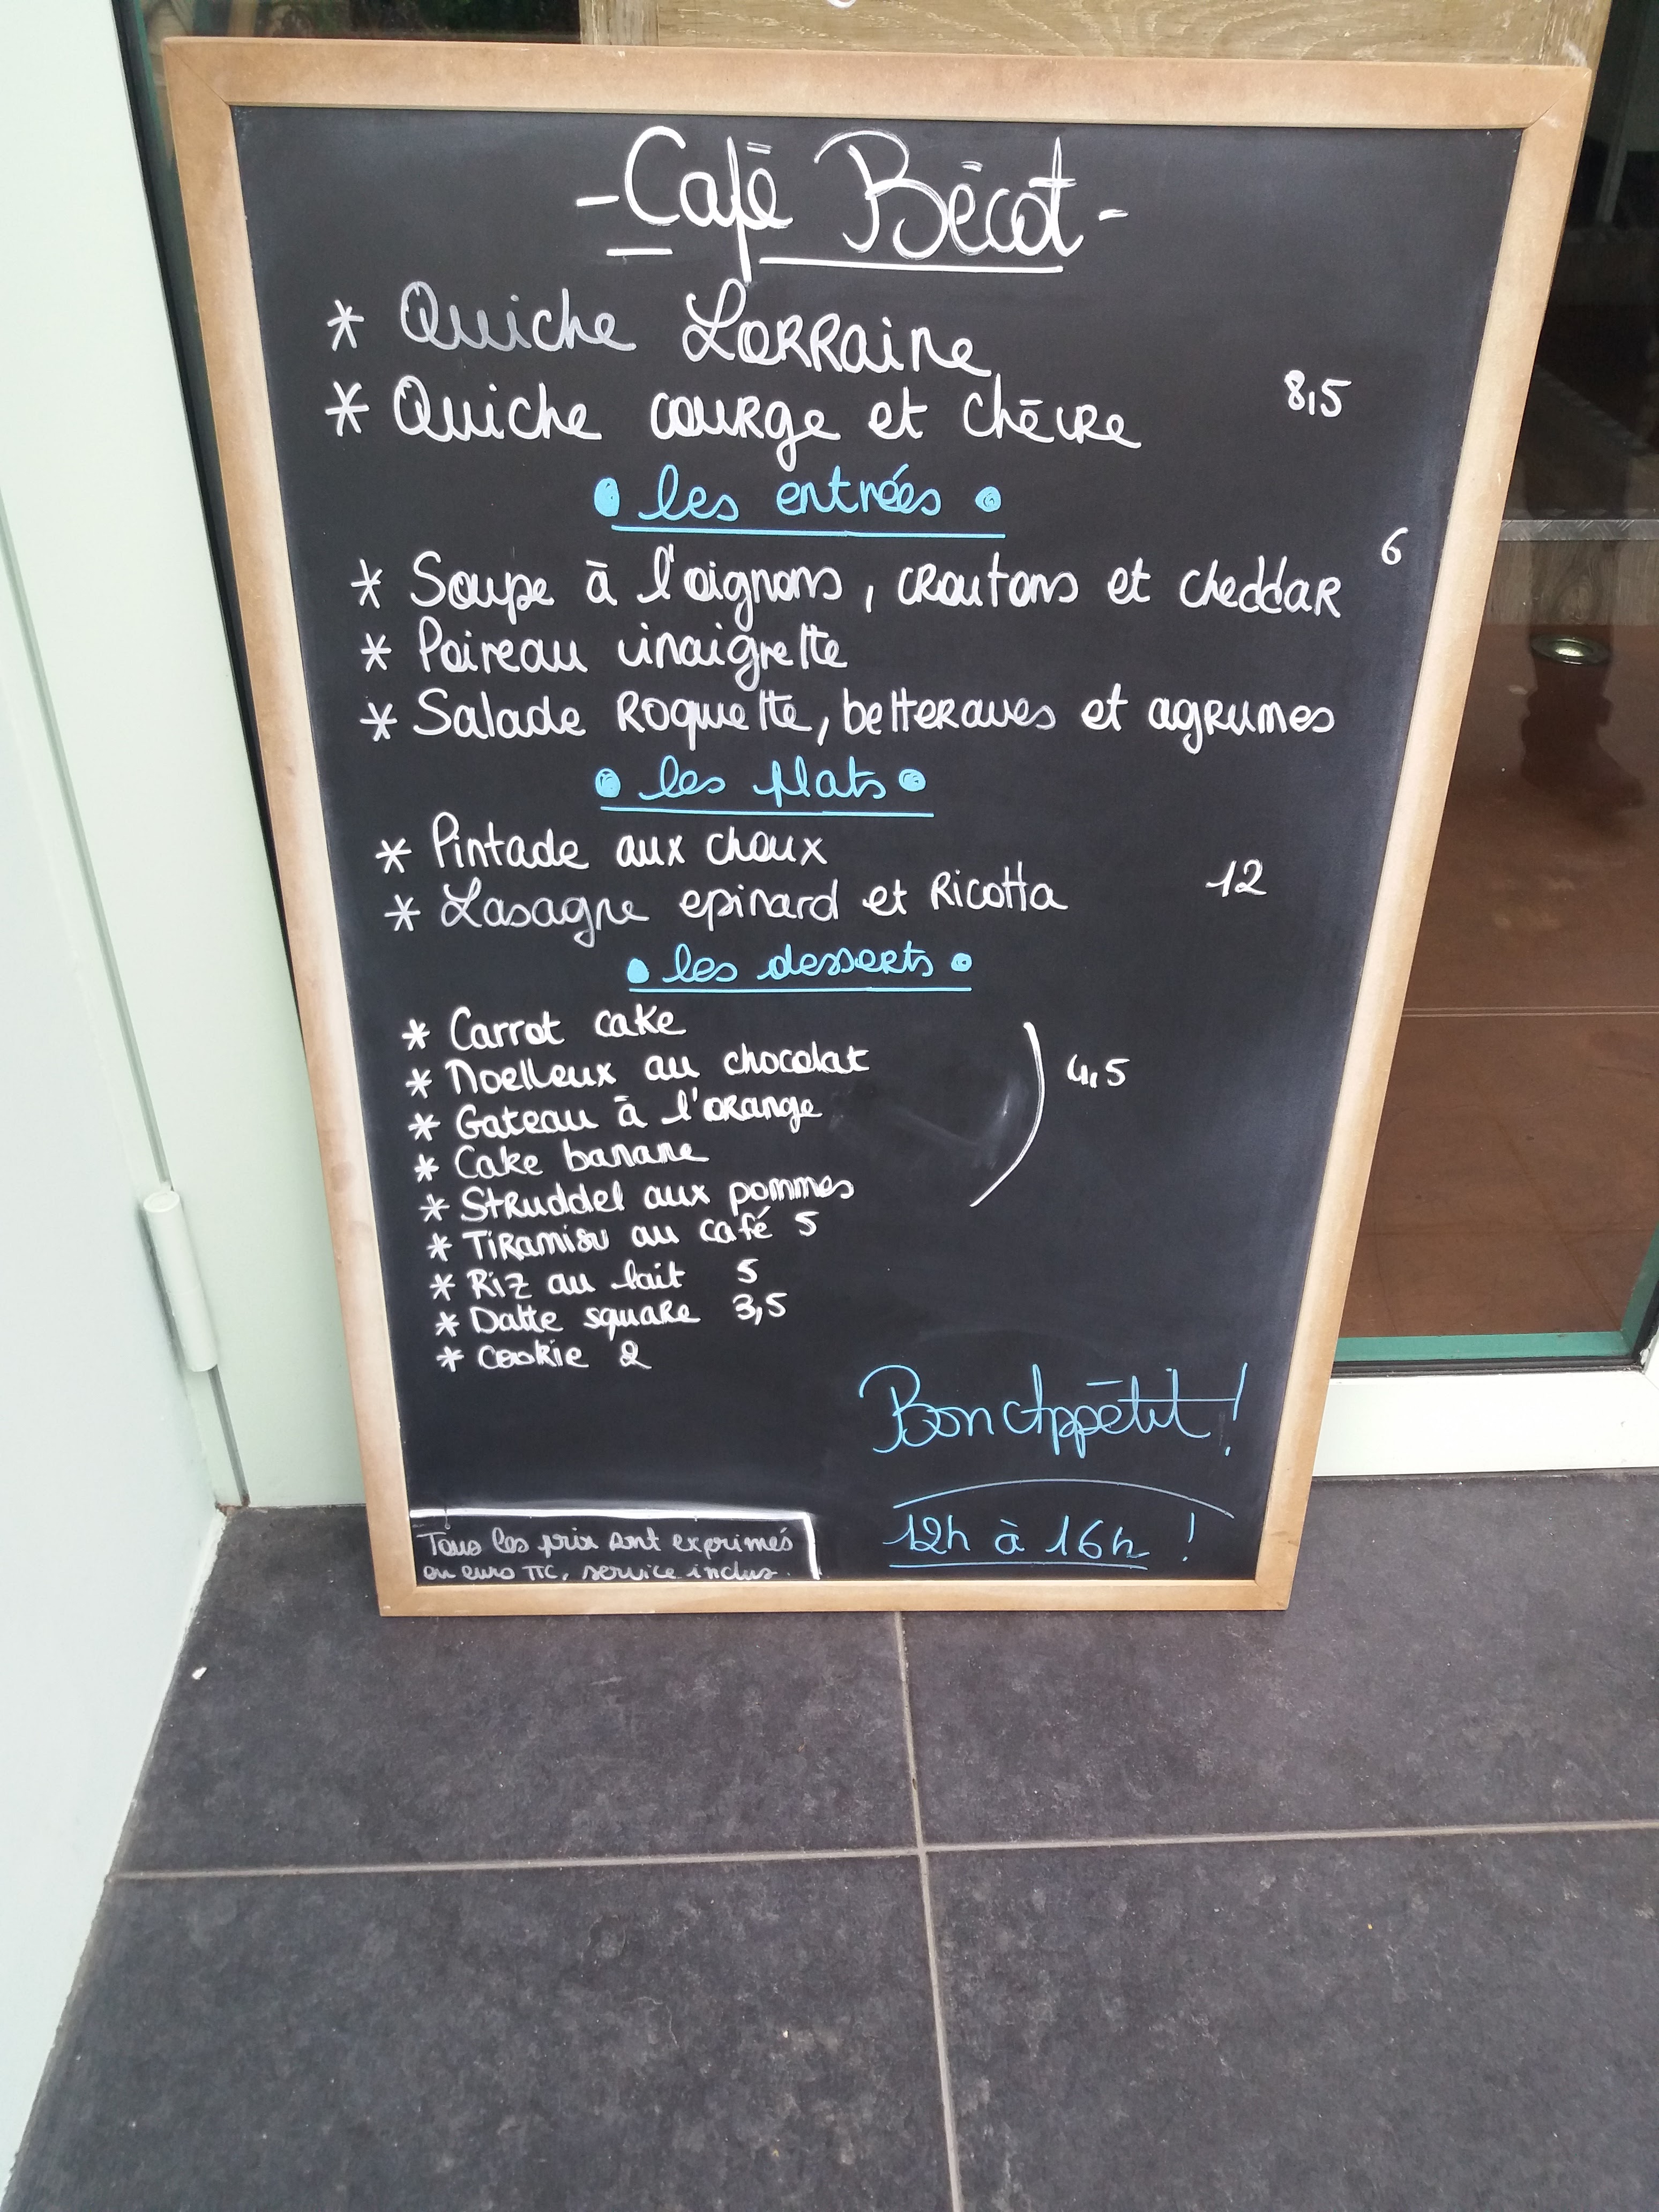 -Café Bécot-
* Quiche Lorraine
* Quiche courge et chèvre 8,5
• les entrées •
* Soupe à l'oignons, croutons et cheddar 6
* Poireau vinaigrette
* Salade Roquette, betteraves et agrumes
• les plats •
* Pintade aux choux
* Lasagne epinard et Ricotta 12
• les desserts •
* Carrot cake
* Moelleux au chocolat
* Gateau à l'orange
* Cake banane
* Struddel aux pommes
4,5
* Tiramisu au café 5
* Riz au lait 5
* Datte square 3,5
* Cookie 2
Bon Appétit!
12h à 16h !
Tous les prix sont exprimés
en euro TTC, service inclus.